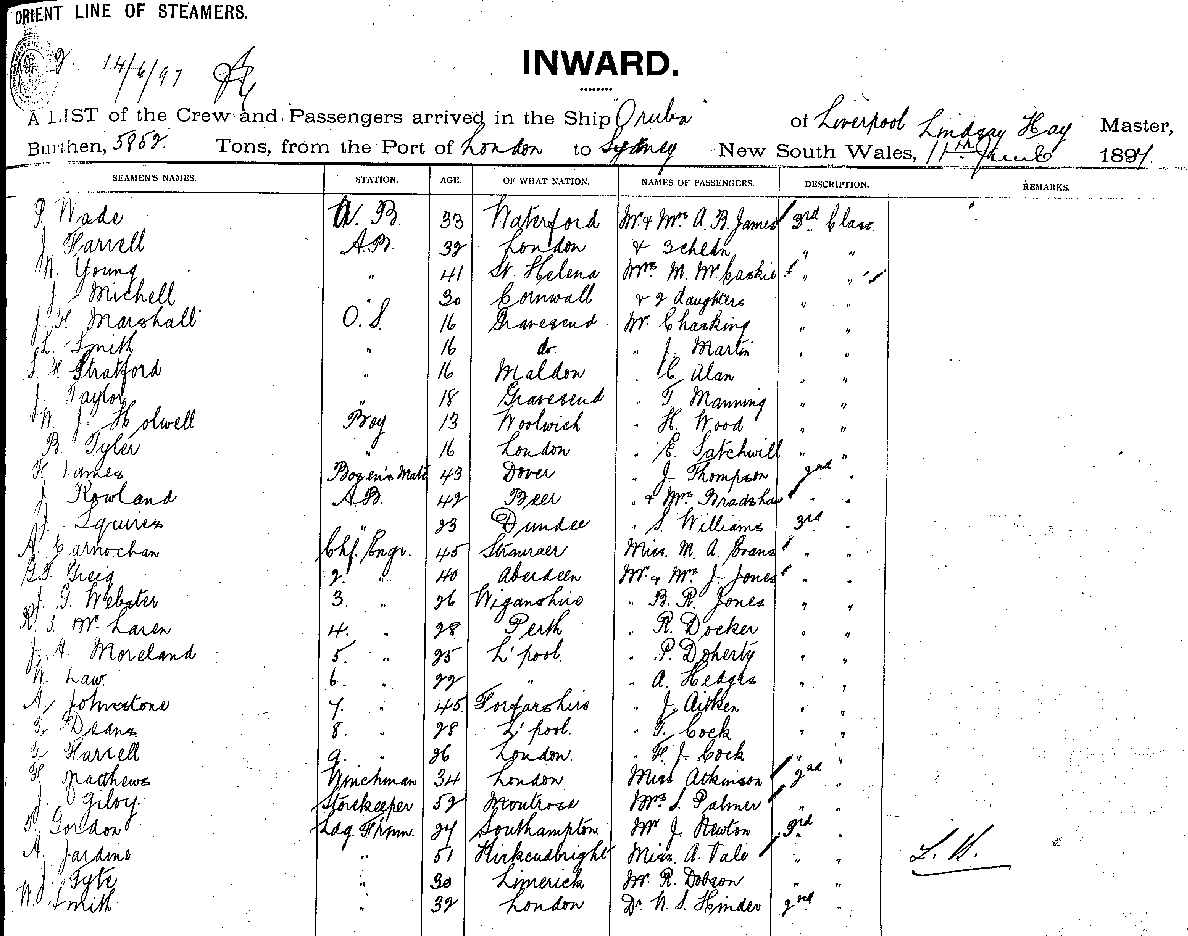 ORIENT LINE OF STEAMERS.
14/6/97
INWARD.
A LIST of the Crew and Passengers arrived in the Ship Oruba of Liverpool Lindsay Hay Master,
Burthen, 5852 Tons, from the Port of London to Sydney New South Wales, 1897.
SEAMEN'S NAMES. STATION. AGE. OF WHAT NATION. NAMES OF PASSENGERS. DESCRIPTION. REMARKS.
P. Wade A. B. 33 Waterford Mr & Mrs A. B. James 3rd Class
J. Harrell A.B. 32 London & 3 chldn " "
W. Young " 41 St. Helena Mrs M. McCaskie " "
J. Michell 30 Cornwall & 2 daughters " "
J. H. Marshall O. S. 16 Gravesend Mr. Chasking " "
L. Smith " 16 do. " J. Martin " "
S. H. Stratford " 16 Maldon " C. Alan " "
J. Taylor 18 Gravesend " T. Manning " "
W. J. Holwell Boy 13 Woolwich " H. Wood " "
B. Tyler " 16 London " E. Satchwill " "
F. James Bosen's Mate 43 Dover " J. Thompson 2nd "
J. Rowland A.B. 42 Beer " & Mrs Bradshaw " "
J. Squires " 23 Dundee " S. Williams 3rd "
A. Carnochan Chf. Engr. 45 Stranraer Miss. M. A. Evans " "
G. S. Greig 2. " 40 Aberdeen Mr. & Mrs J. Jones " "
J. G. Webster 3. " 26 Wiganshire " B. R. Jones " "
R. S. McLaren 4. " 28 Perth " R. Docker " "
J. A. Moreland 5. " 25 L'pool. " P. Doherty " "
W. Law 6. " 22 " " A. Hedges " "
A. Johnstone 7. " 45 Forfarshire " J. Aitken " "
G. Deans 8. " 28 L'pool. " T. Cock " "
G. Harrell 9. " 26 London. " F. J. Cock " "
H. Matthews Winchman 34 London Miss Atkinson 2nd "
J. Gilov Storekeeper 52 Montrose Mrs S. Palmer " "
P. Gordon Ldg Firemn. 24 Southampton Mr J. Newton 3rd "
A. Jardine " 51 Kirkcudbright Miss. A. Vale " " L. H.
J. Fyte " 30 Limerick Mr. R. Dobson " "
W. Smith " 32 London Dr. W. S. Hinder 2nd "